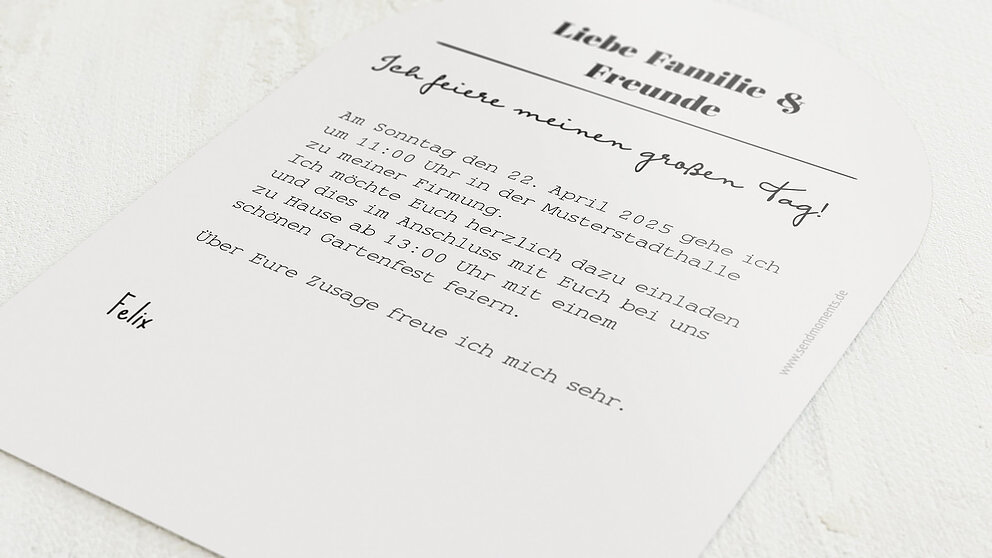 Liebe Familie &
Freunde
Ich feiere meinen großen Tag!
Am Sonntag den 22. April 2025 gehe ich
um 11:00 Uhr in der Musterstadthalle
zu meiner Firmung.
Ich möchte Euch herzlich dazu einladen
und dies im Anschluss mit Euch bei uns
zu Hause ab 13:00 Uhr mit einem
schönen Gartenfest feiern.
Über Eure Zusage freue ich mich sehr.
Felix
www.sendmoments.de